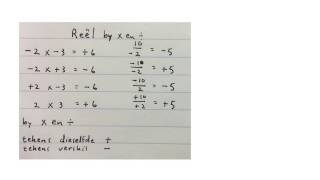 Reël by x en ÷
-2 x -3 = +6 10/-2 = -5
-2 x +3 = -6 -10/-2 = +5
+2 x -3 = -6 -10/2 = -5
2 x 3 = +6 +10/+2 = +5
by x en ÷
tekens dieselfde +
tekens verskil -